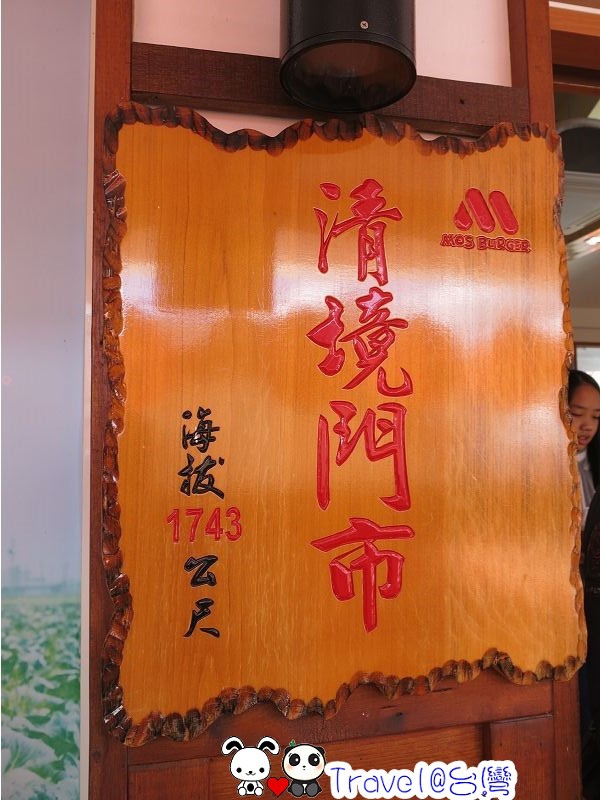 MOS BURGER
清境門市
海拔
1743
公尺
Travel@台灣